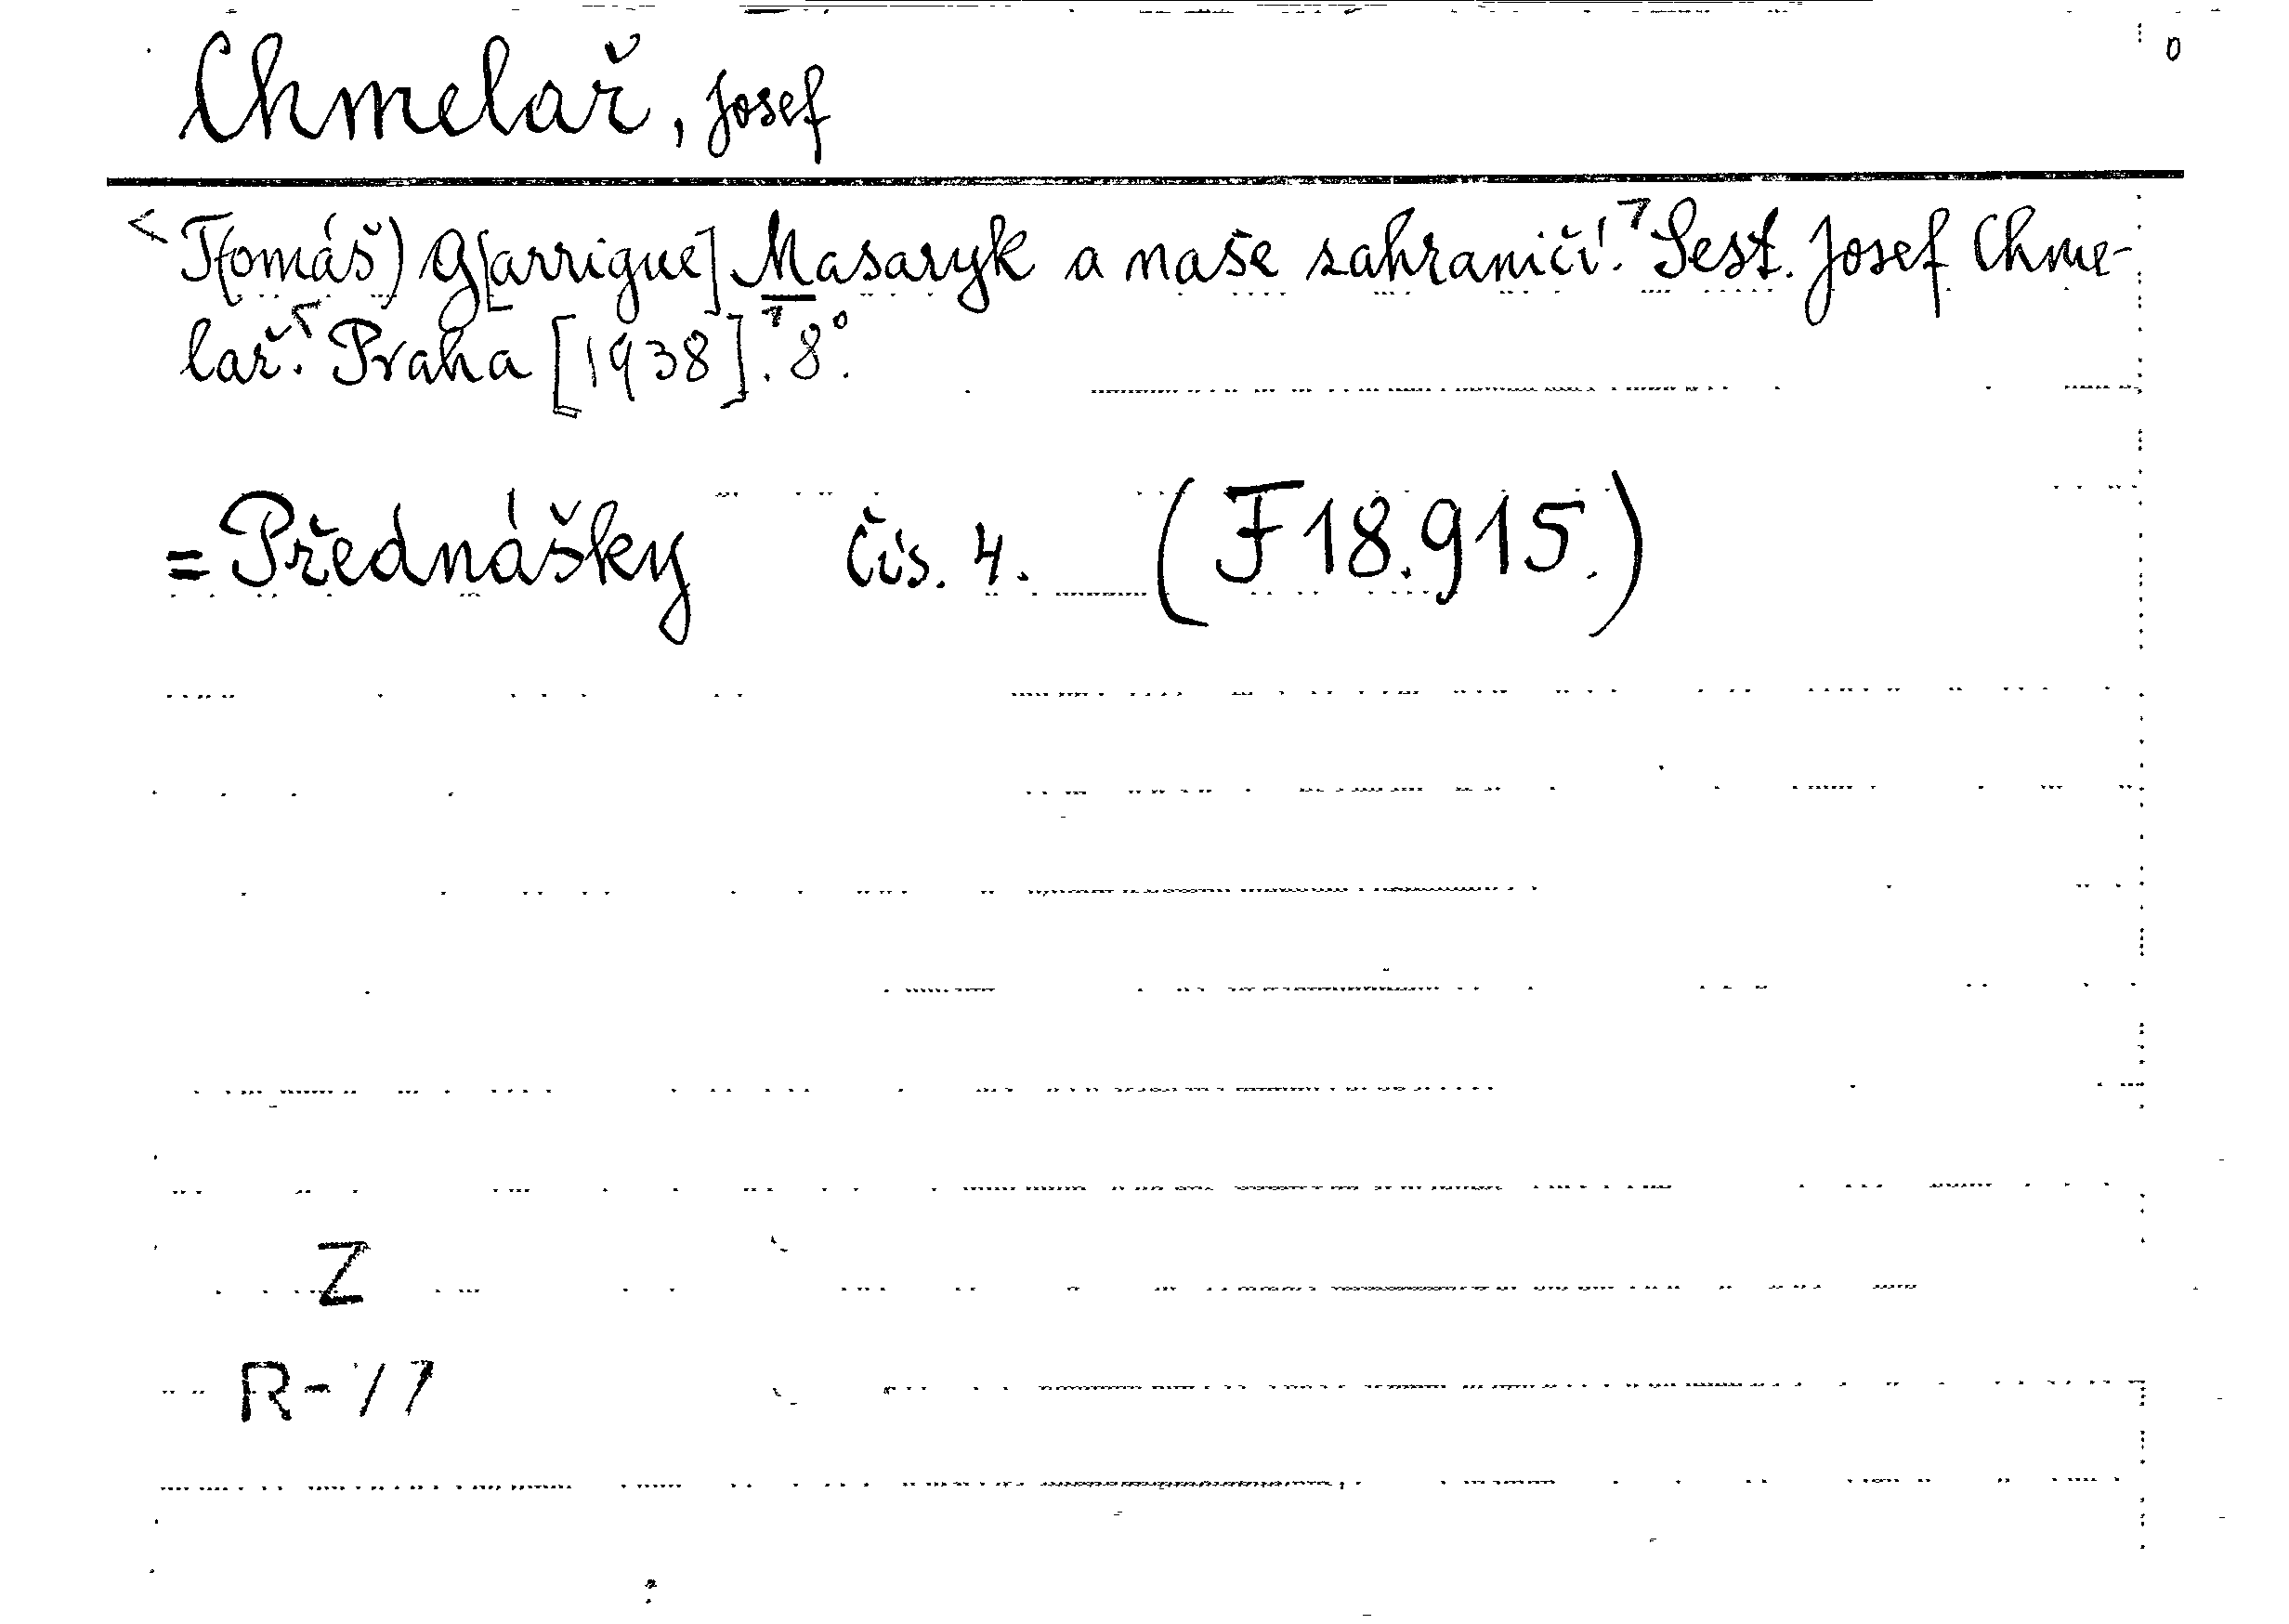 Chmelař, Josef
T(omáš) G[arrigue] Masaryk a naše zahraničí. Sest. Josef Chme-
lař. Praha [1938]. 8°.
= Přednášky čís. 4. (F 18.915.)
Z
R-77